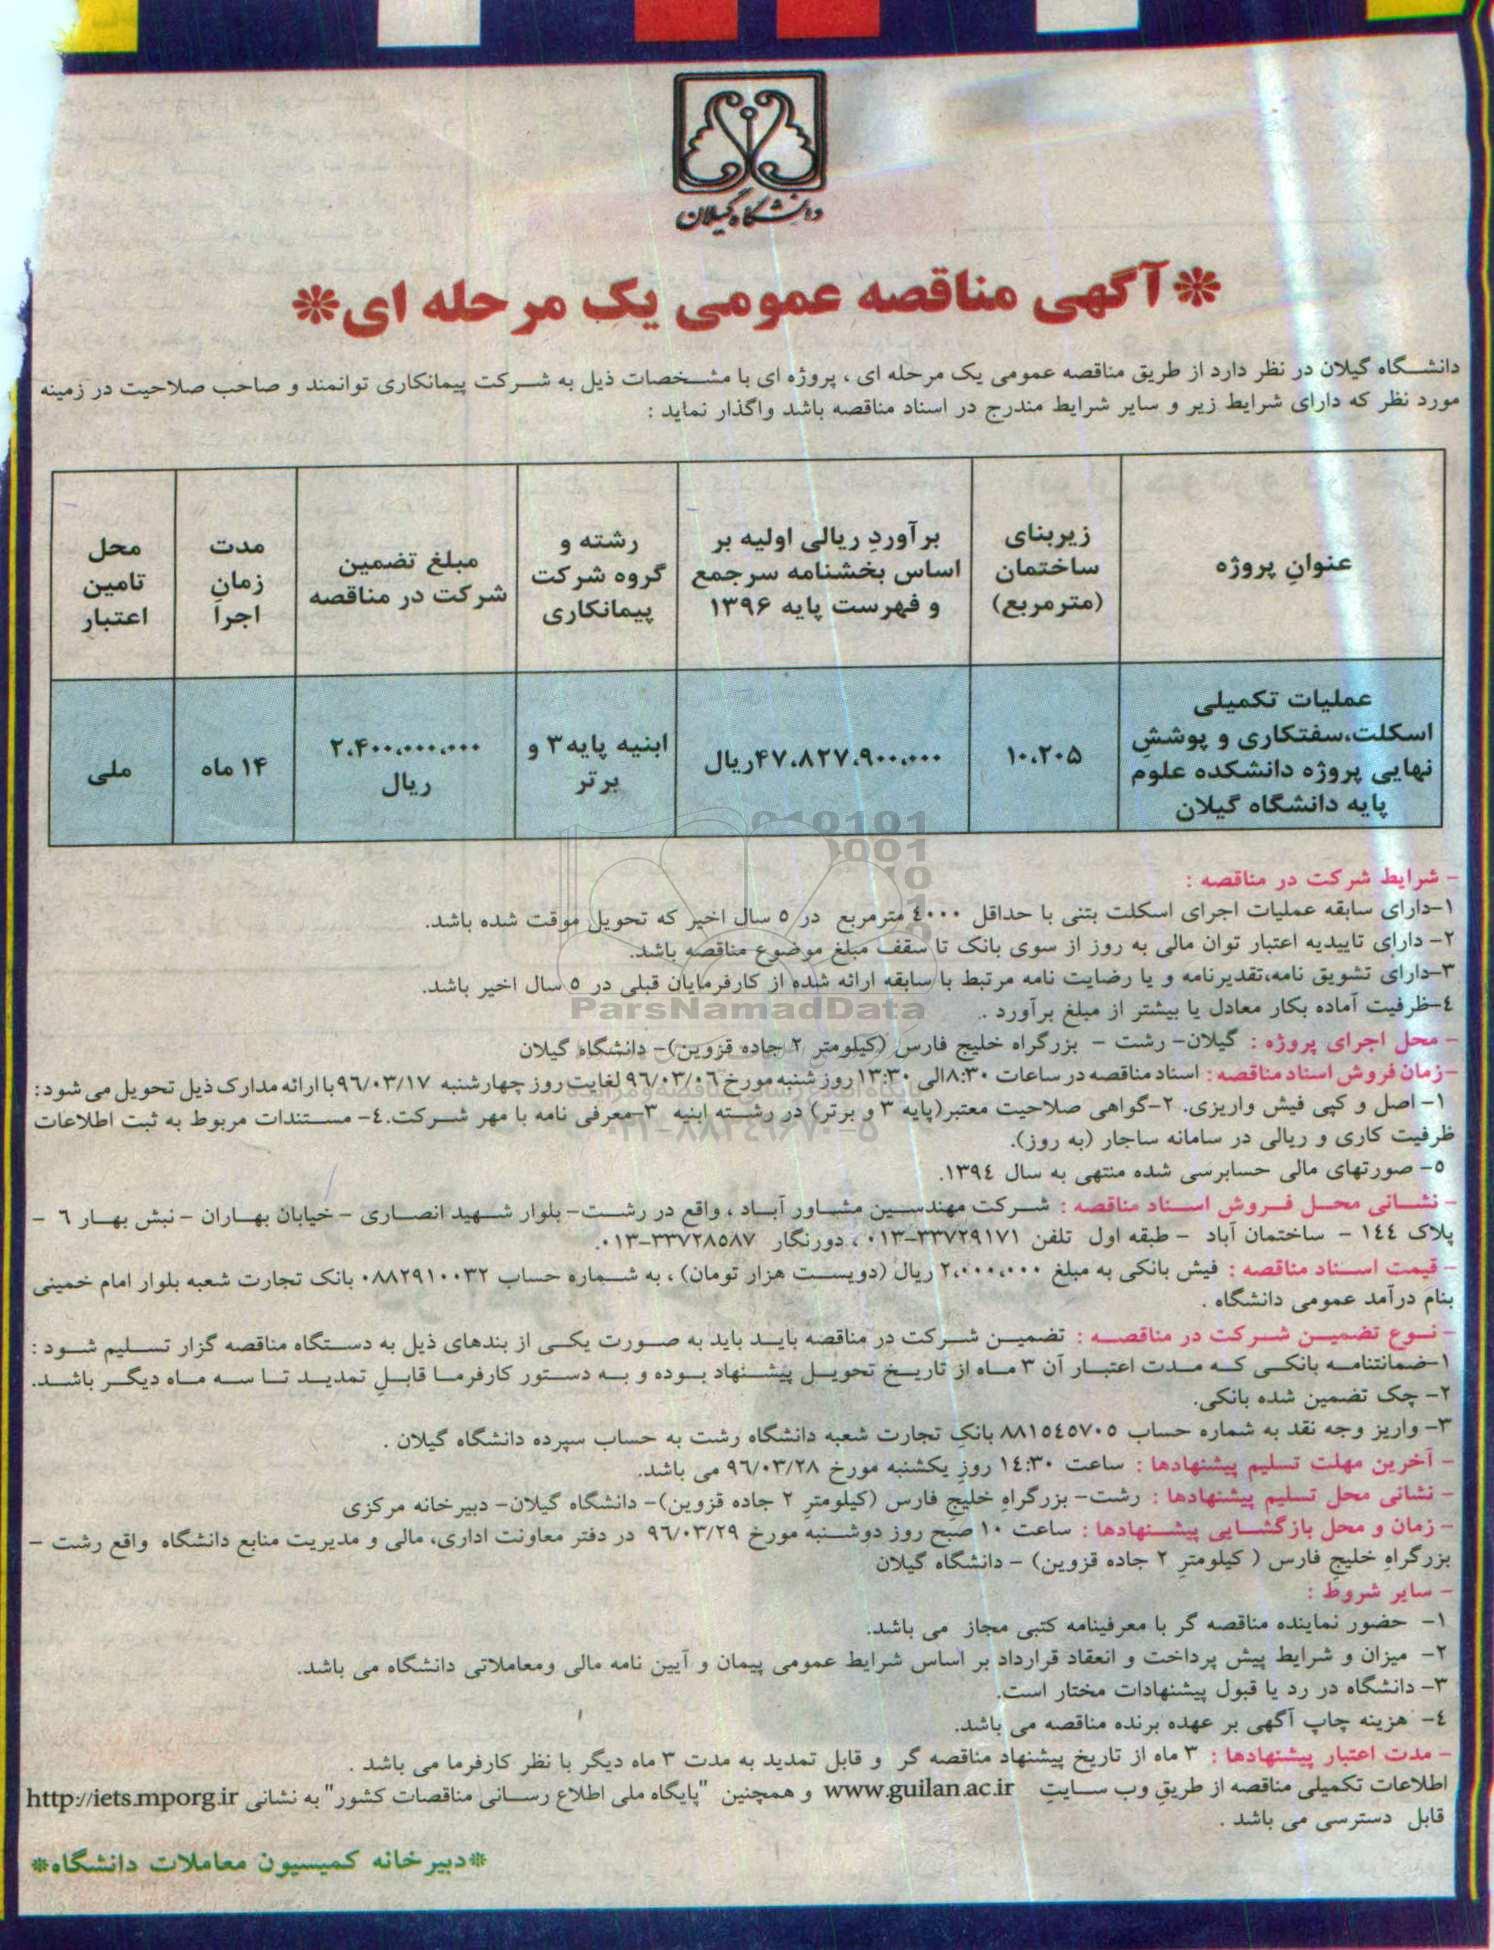 دانشگاه گیلان
❋آگهی مناقصه عمومی یک مرحله ای❋
دانشگاه گیلان در نظر دارد از طریق مناقصه عمومی یک مرحله ای ، پروژه ای با مشخصات ذیل به شرکت پیمانکاری توانمند و صاحب صلاحیت در زمینه
مورد نظر که دارای شرایط زیر و سایر شرایط مندرج در اسناد مناقصه باشد واگذار نماید :
عنوانِ پروژه
زیربنای
ساختمان
(مترمربع)
برآوردِ ریالی اولیه بر
اساس بخشنامه سرجمع
و فهرست پایه ۱۳۹۶
رشته و
گروه شرکت
پیمانکاری
مبلغ تضمین
شرکت در مناقصه
مدت
زمانِ
اجرا
محل
تامین
اعتبار
عملیات تکمیلی
اسکلت،سفتکاری و پوششِ
نهایی پروژه دانشکده علوم
پایه دانشگاه گیلان
۱۰،۲۰۵
۴۷،۸۲۷،۹۰۰،۰۰۰ریال
ابنیه پایه۳ و
برتر
۲،۴۰۰،۰۰۰،۰۰۰
ریال
۱۴ ماه
ملی
- شرایط شرکت در مناقصه :
۱-دارای سابقه عملیات اجرای اسکلت بتنی با حداقل ۴۰۰۰ مترمربع در ۵ سال اخیر که تحویل موقت شده باشد.
۲- دارای تاییدیه اعتبار توان مالی به روز از سوی بانک تا سقف مبلغ موضوع مناقصه باشد.
۳-دارای تشویق نامه،تقدیرنامه و یا رضایت نامه مرتبط با سابقه ارائه شده از کارفرمایان قبلی در ۵ سال اخیر باشد.
۴-ظرفیت آماده بکار معادل یا بیشتر از مبلغ برآورد .
ParsNamadData
- محل اجرای پروژه : گیلان- رشت - بزرگراه خلیج فارس (کیلومتر ۲ جاده قزوین)- دانشگاه گیلان
-زمان فروش اسناد مناقصه : اسناد مناقصه در ساعات ۸:۳۰الی ۱۳:۳۰ روز شنبه مورخ ۹۶/۰۳/۰۶ لغایت روز چهارشنبه ۹۶/۰۳/۱۷با ارائه مدارک ذیل تحویل می شود :
۱- اصل و کپی فیش واریزی. ۲-گواهی صلاحیت معتبر(پایه ۳ و برتر) در رشته ابنیه ۳-معرفی نامه با مهر شرکت.۴- مستندات مربوط به ثبت اطلاعات
ظرفیت کاری و ریالی در سامانه ساجار (به روز).
۰۲۱-۸۸۳۴۹۶۷۰-۵
۵- صورتهای مالی حسابرسی شده منتهی به سال ۱۳۹۴.
- نشانی محل فروش اسناد مناقصه : شرکت مهندسین مشاور آباد ، واقع در رشت- بلوار شهید انصاری - خیابان بهاران - نبش بهار ۶ -
پلاک ۱۴۴ - ساختمان آباد - طبقه اول تلفن ۳۳۷۲۹۱۷۱-۰۱۳ ، دورنگار ۳۳۷۲۸۵۸۷-۰۱۳.
- قیمت اسناد مناقصه : فیش بانکی به مبلغ ۲،۰۰۰،۰۰۰ ریال (دویست هزار تومان) ، به شماره حساب ۰۸۸۲۹۱۰۰۳۲ بانک تجارت شعبه بلوار امام خمینی
بنام درآمد عمومی دانشگاه .
- نوع تضمین شرکت در مناقصه : تضمین شرکت در مناقصه باید باید به صورت یکی از بندهای ذیل به دستگاه مناقصه گزار تسلیم شود :
۱-ضمانتنامه بانکی که مدت اعتبار آن ۳ ماه از تاریخ تحویل پیشنهاد بوده و به دستور کارفرما قابلِ تمدید تا سه ماه دیگر باشد.
۲- چک تضمین شده بانکی.
۳- واریز وجه نقد به شماره حساب ۸۸۱۵۴۵۷۰۵ بانکِ تجارت شعبه دانشگاه رشت به حساب سپرده دانشگاه گیلان .
- آخرین مهلت تسلیم پیشنهادها : ساعت ۱۴:۳۰ روزِ یکشنبه مورخ ۹۶/۰۳/۲۸ می باشد.
- نشانی محل تسلیم پیشنهادها : رشت- بزرگراهِ خلیج فارس (کیلومترِ ۲ جاده قزوین)- دانشگاه گیلان- دبیرخانه مرکزی
- زمان و محل بازگشایی پیشنهادها : ساعت ۱۰ صبح روز دوشنبه مورخ ۹۶/۰۳/۲۹ در دفتر معاونت اداری، مالی و مدیریت منابع دانشگاه واقع رشت -
بزرگراهِ خلیجِ فارس ( کیلومترِ ۲ جاده قزوین) - دانشگاه گیلان
- سایر شروط :
۱- حضور نماینده مناقصه گر با معرفینامه کتبی مجاز می باشد.
۲- میزان و شرایط پیش پرداخت و انعقاد قرارداد بر اساس شرایط عمومی پیمان و آیین نامه مالی ومعاملاتی دانشگاه می باشد.
۳- دانشگاه در رد یا قبول پیشنهادات مختار است.
۴- هزینه چاپ آگهی بر عهده برنده مناقصه می باشد.
- مدت اعتبار پیشنهادها : ۳ ماه از تاریخ پیشنهاد مناقصه گر و قابل تمدید به مدت ۳ ماه دیگر با نظر کارفرما می باشد .
اطلاعات تکمیلی مناقصه از طریقِ وب سایتِ www.guilan.ac.ir و همچنین "پایگاه ملی اطلاع رسانی مناقصات کشور" به نشانی http://iets.mporg.ir
قابل دسترسی می باشد .
❋دبیرخانه کمیسیون معاملات دانشگاه❋